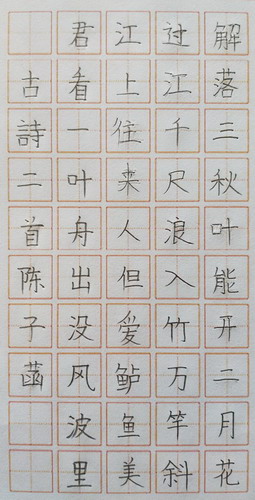 解落三秋叶能开二月花
过江千尺浪入竹万竿斜
江上往来人但爱鲈鱼美
君看一叶舟出没风波里
古詩二首陈子菡